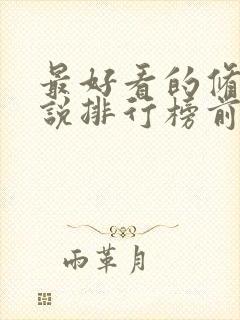 最好看的修
說排行榜前
雨革月